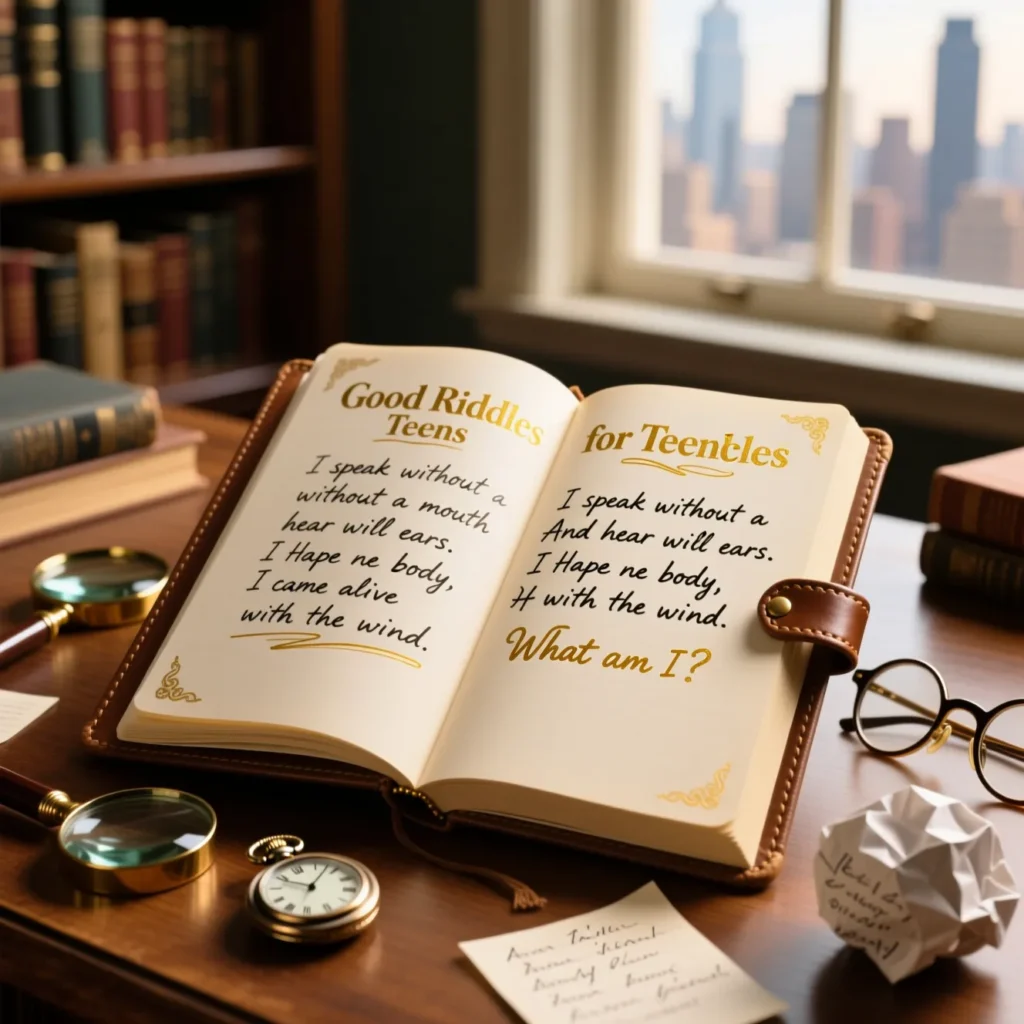 Good Riddles
Teens
I speak without a
without a mouth
hear will ears.
I Hape ne body,
I came alive
with the wind.
for Teencles
I speak without a
And hear will ears.
I Hape ne body,
H with the wind.
What am I?